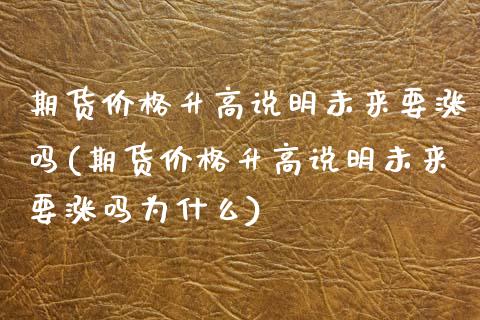 期货价格升高说明未来要涨
吗(期货价格升高说明未来
要涨吗为什么)